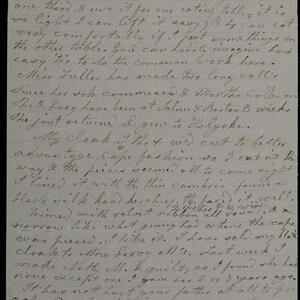 one third & use it for our eating table, it is
so light I can lift it easy) & 4 can eat
very comfortably if I put some things on
the other table. You can hardly imagine how
easy tis to do the common work here.
Miss Fuller has made two long calls
since her sch. commenced & Martha
She & Lucy have been at Salem & Boston 2 weeks
She just returned & gone to Holyoke.
My cloak I tho't w'd cut to better
advantage, Cape fashion so I cut it that
way & the pieces seemed all to come right
I lined it with thin cambric, found a
black silk hand kerchief to face it
trimed with velvet ribbon all round, & a
narrow like what you have where the cape
was pieced. I like it. I have sold my
cloak to Mrs. Leroy M. Last week I
made quilt, as I found she had
none except one I gave her 2 or 3 years ago.
It has not hurt your father at all to